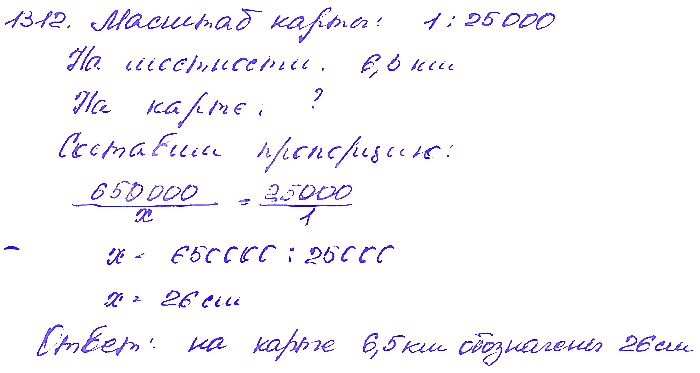 1312. Масштаб карты: 1 : 25 000
На местности. 6,5 км
На карте. ?
Составим пропорцию:
650 000 / x = 25000 / 1
x = 650000 : 25000
x = 26 см
Ответ: на карте 6,5 км обозначены 26 см